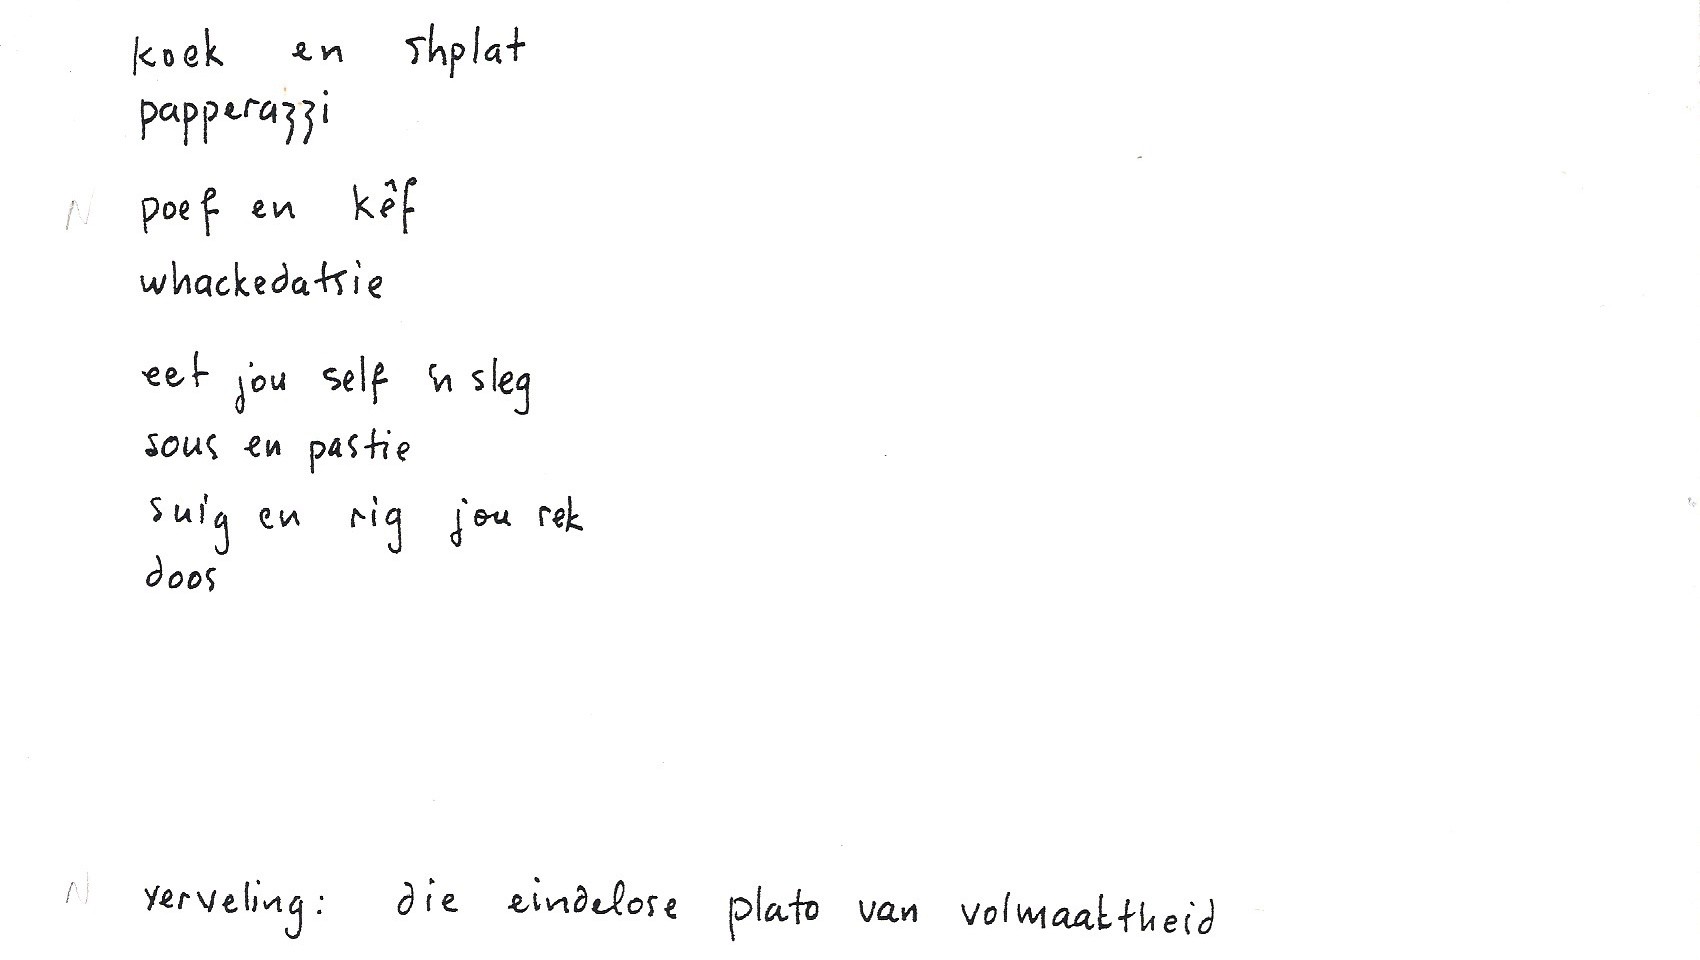 koek en shplat
papperazzi
N poef en kêf
whackedatsie
eet jou self 'n sleg
sous en pastie
suig en rig jou rek
doos
N verveling: die eindelose plato van volmaaktheid